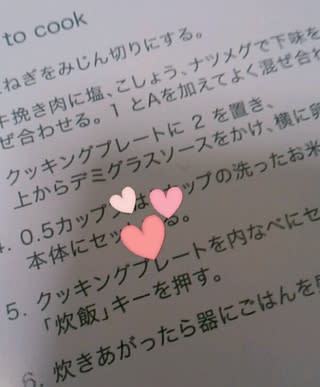 to cook
ねぎをみじん切りにする。
挽き肉に塩、こしょう、ナツメグで下味を
ぜ合わせる。1 とAを加えてよく混ぜ合わ
クッキングプレートに 2 を置き、
上からデミグラスソースをかけ、横に卵
4. 0.5カップ カップの洗ったお米
本体にセッ る。
5. クッキングプレートを内なべにセ
「炊飯」キーを押す。
6. 炊きあがったら器にごはんを